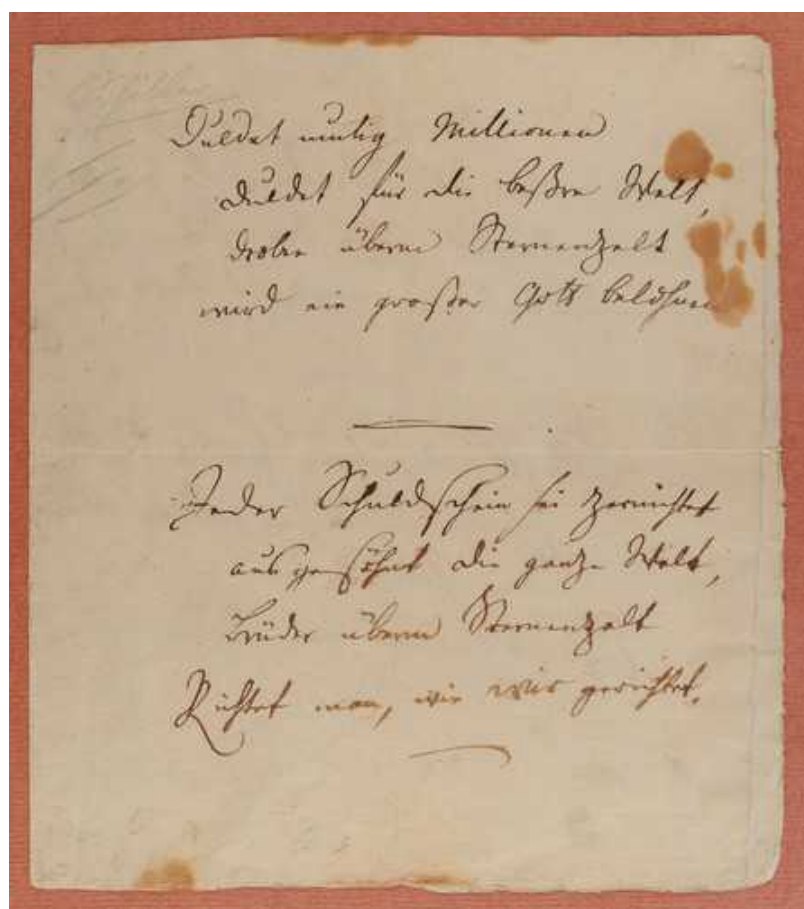 Duldet mutig Millionen
duldet für die beßre Welt,
droben überm Sternenzelt
wird ein großer Gott belohnen
Jeder Schuldschein sei zernichtet
ausgesöhnt die ganze Welt,
Brüder überm Sternenzelt
Richtet man, wie wir gerichtet.